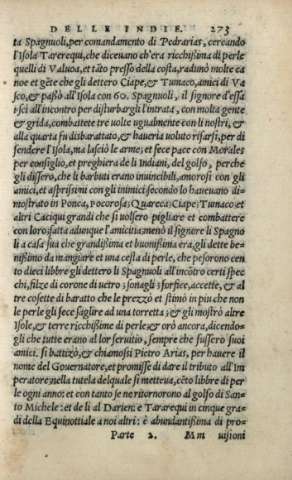 DELLE INDIE. 273
ta Spagnuoli, per comandamento di Pedrarias, cercando
l'Isola Tarerequi, che diceuano ch'era ricchissima di perle
quelli di Valuoa, et tãto presso della costa, radunò molte ca
noe et gẽte che gli dettero Ciape, & Tunaco, amici di Va
sco, & passò all'Isola con 60. Spagnuoli, il signore d'essa
u'scì all'incontro per disturbargli l'intrata, con molta gente
& grida, combattete tre uolte ugualmente con li nostri, &
alla quarta fu disbarattato, & haueria uoluto rifarsi, per di
fendere l'Isola, ma lasciò le arme; et fece pace con Morales
per consiglio, et preghiera de li Indiani, del golfo, perche
gli dissero, che li barbuti erano inuincibili, amorosi con gli
amici, et asprissimi con gli inimici secondo lo haueuano di-
mostrato in Ponca, Pocorosa; Quareca; Ciape; Tunaco: et
altri Caciqui grandi che si uolsero pigliare et combattere
con loro; fatta adunque l'amicitia; menò il signore li Spagno
li a casa sua che grandissima et buonissima era, gli dette be-
nissimo da mangiare et una cesta di perle, che pesorono cen
to dieci libbre gli dettero li Spagnuoli all'incõtro certi spec
chi, filze di corone di uetro; sonagli; forfice, accette, & al
tre cosette di baratto che le prezzò et stimò in piu che non
le perle gli fece saglire ad una torretta; & gli mostrò altre
Isole, & terre ricchissime di perle; & orò ancora, dicendo-
gli che tutte erano al lor seruitio, sempre che fussero suoi
amici. si battizò, & chiamossi Pietro Arias, per hauere il
nome del Gouernatore, et promisse di dare il tributo all'Im
peratore; nella tutela del quale si metteua, cẽto libbre di per
le ogni anno: et con tanto se ne ritornorono al golfo di San-
to Michele: et de li al Darien: è Tararequi in cinque gra-
di della Equinottiale a noi altri: è abundantissima di pro-
Parte 2. Mm uisioni